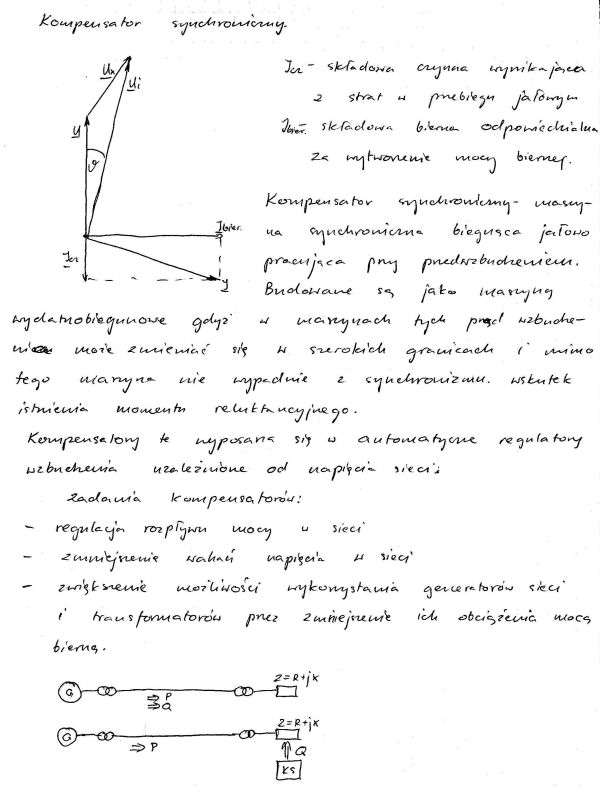 Kompensator synchroniczny.
Ux
Ui
U
ϑ
Icz
Ibier.
I
Icz - składowa czynna wynikająca
z strat w przebiegu jałowym
Ibier. składowa bierna odpowiedzialna
za wytworzenie mocy biernej.
Kompensator synchroniczny - maszy-
na synchroniczna biegnąca jałowo
pracująca przy przedwzbudzeniem.
Budowane są jako maszyną
wydatnobiegunowe gdyż w maszynach tych prąd wzbudze-
nia może zmieniać się w szerokich granicach i mimo
tego maszyna nie wypadnie z synchronizmu. wskutek
istnienia momentu reluktancyjnego.
Kompensatory te wyposaża się w automatyczne regulatory
wzbudzenia uzależnione od napięcia sieci.
Zadania kompensatorów:
- regulacja rozpływu mocy w sieci
- zmniejszenie wahań napięcia w sieci
- zwiększenie możliwości wykorzystania generatorów sieci
i transformatorów przez zmniejszenie ich obciążenia mocą
bierną.
Z=R+jX
G
⇒ P
⇒ Q
Z=R+jX
G
⇒ P
⇑ Q
KS